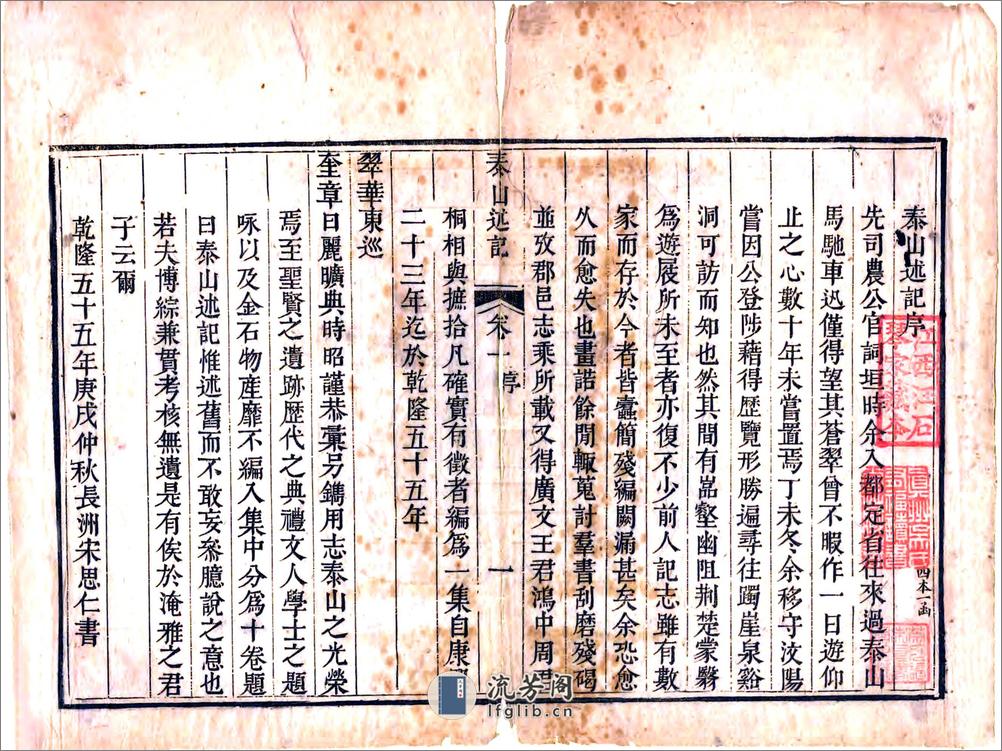 泰山述記序
先司農公官詞垣時余入都定省往來過泰山
馬馳車迅僅得望其蒼翠曾不暇作一日遊仰
止之心數十年未嘗置焉丁未冬余移守汶陽
嘗因公登陟藉得歷覽形勝遍尋往躅崖泉谿
洞可訪而知也然其間有嵓壑幽阻荆楚蒙翳
為遊屐所未至者亦復不少前人記志雖有數
家而存於今者皆蠹簡殘編闕漏甚矣余恐愈
乆而愈失也畫諾餘閒輙蒐討羣書刮磨殘碣
並攷郡邑志乘所載又得廣文王君鴻中周君
桐相與摭拾凡確實有徵者編為一集自康
二十三年迄於乾隆五十五年
翠華東巡
奎章日麗曠典時昭謹恭彙另鐫用志泰山之光榮
焉至聖賢之遺跡歷代之典禮文人學士之題
咏以及金石物産靡不編入集中分為十卷題
曰泰山述記惟述舊而不敢妄叅臆說之意也
若夫博綜兼貫考核無遺是有俟於淹雅之君
子云爾
乾隆五十五年庚戌仲秋長洲宋思仁書
泰山述記
卷一序
一
四本一函
流芳阁
lfglib.cn